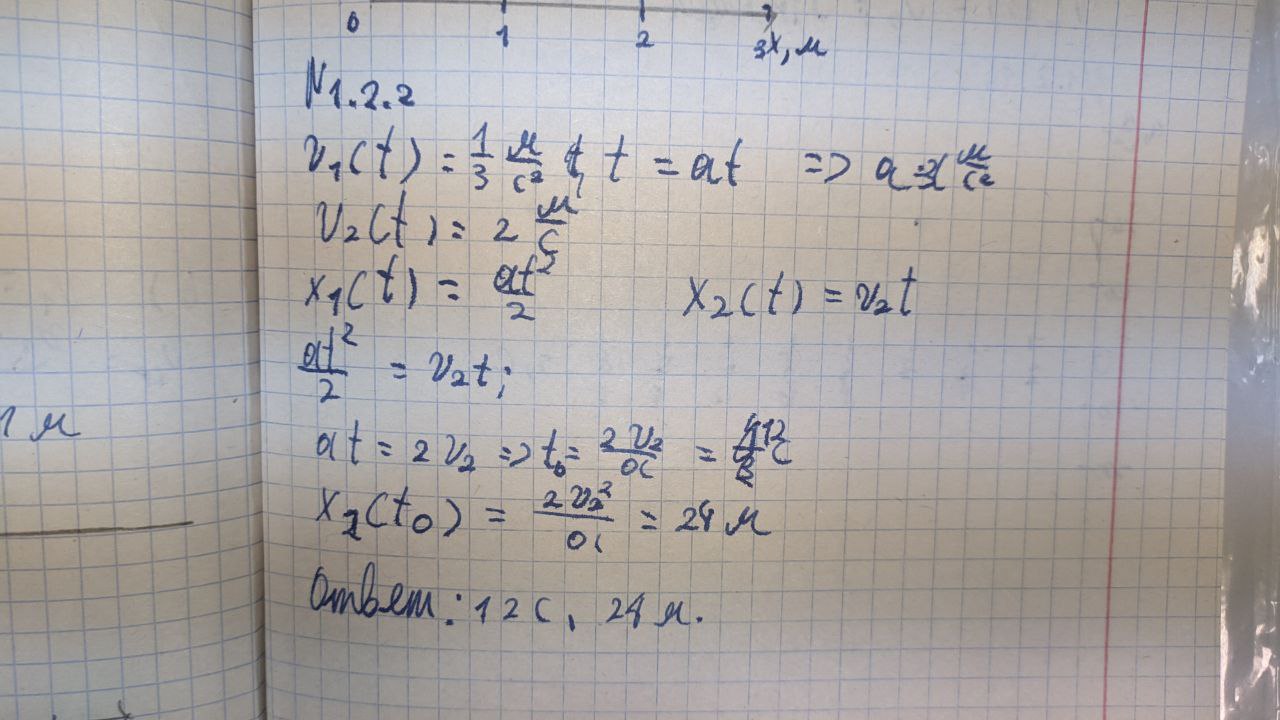 0 1 2 3 x, м
N1.2.2
v₁(t) = 1/3 м/с² t = at => a = м/с²
v₂(t) = 2 м/с
x₁(t) = at²/2 x₂(t) = v₂t
at²/2 = v₂t;
1 м
at = 2v₂ => t₀ = 2v₂/a = 12 с
x₂(t₀) = 2v₂²/a = 24 м
Ответ: 12 с, 24 м.